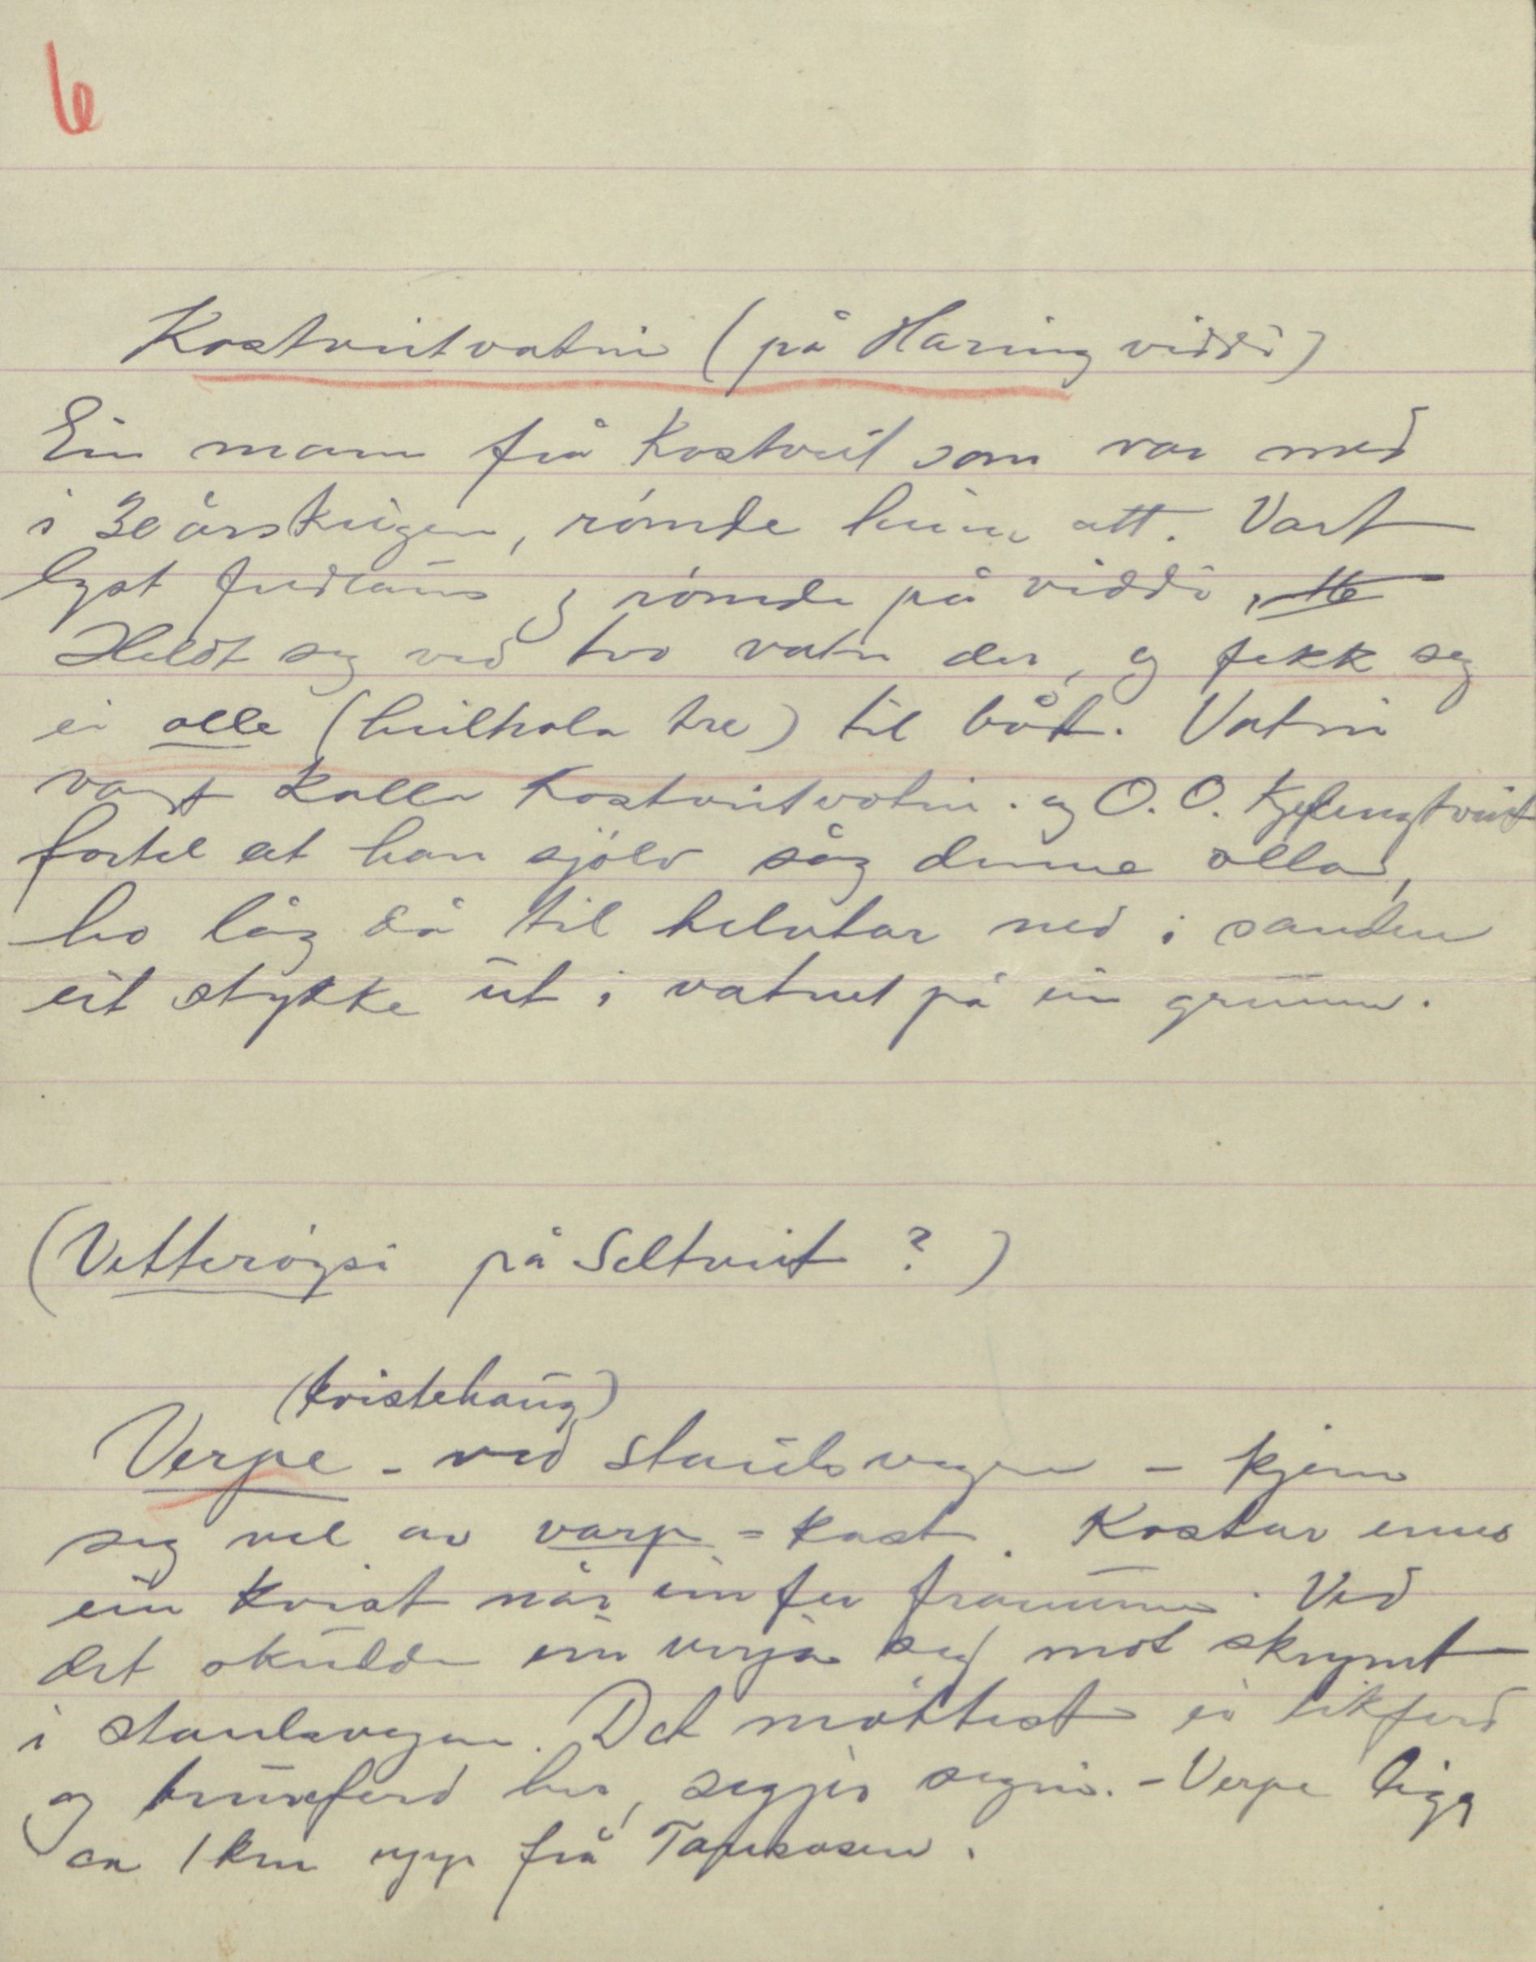 6
Kostveitvatni (på Haring viddi)
Ein mann frå Kostveit som var med
i 30 årskrigen, rømde heim att. Vart
lyst fredlaus og rømde på viddi,
Heldt seg ved tvo vatn der, og fekk seg
ei olle (heilhola tre) til båt. Vatni
vart kalla Kostveitvatni. og O. O.
fortel at han sjølv såg denne olla,
ho låg då til helvtar ned i sanden
eit stykke ut i vatnet på ein grunne.
(Vetterøysi på Seltveit ?)
(kvistehaug)
Verpe - ved stauls vegen - kjem
seg vel av varp = kast. Kostar einus
ein kvist når ein fer framum. Ved
det skulde ein verja seg mot skrymt
i staulsvegen. Det møttest ei likferd
og bruraferd her, segjer segni. - Verpe ligg
ca 1 km upp frå